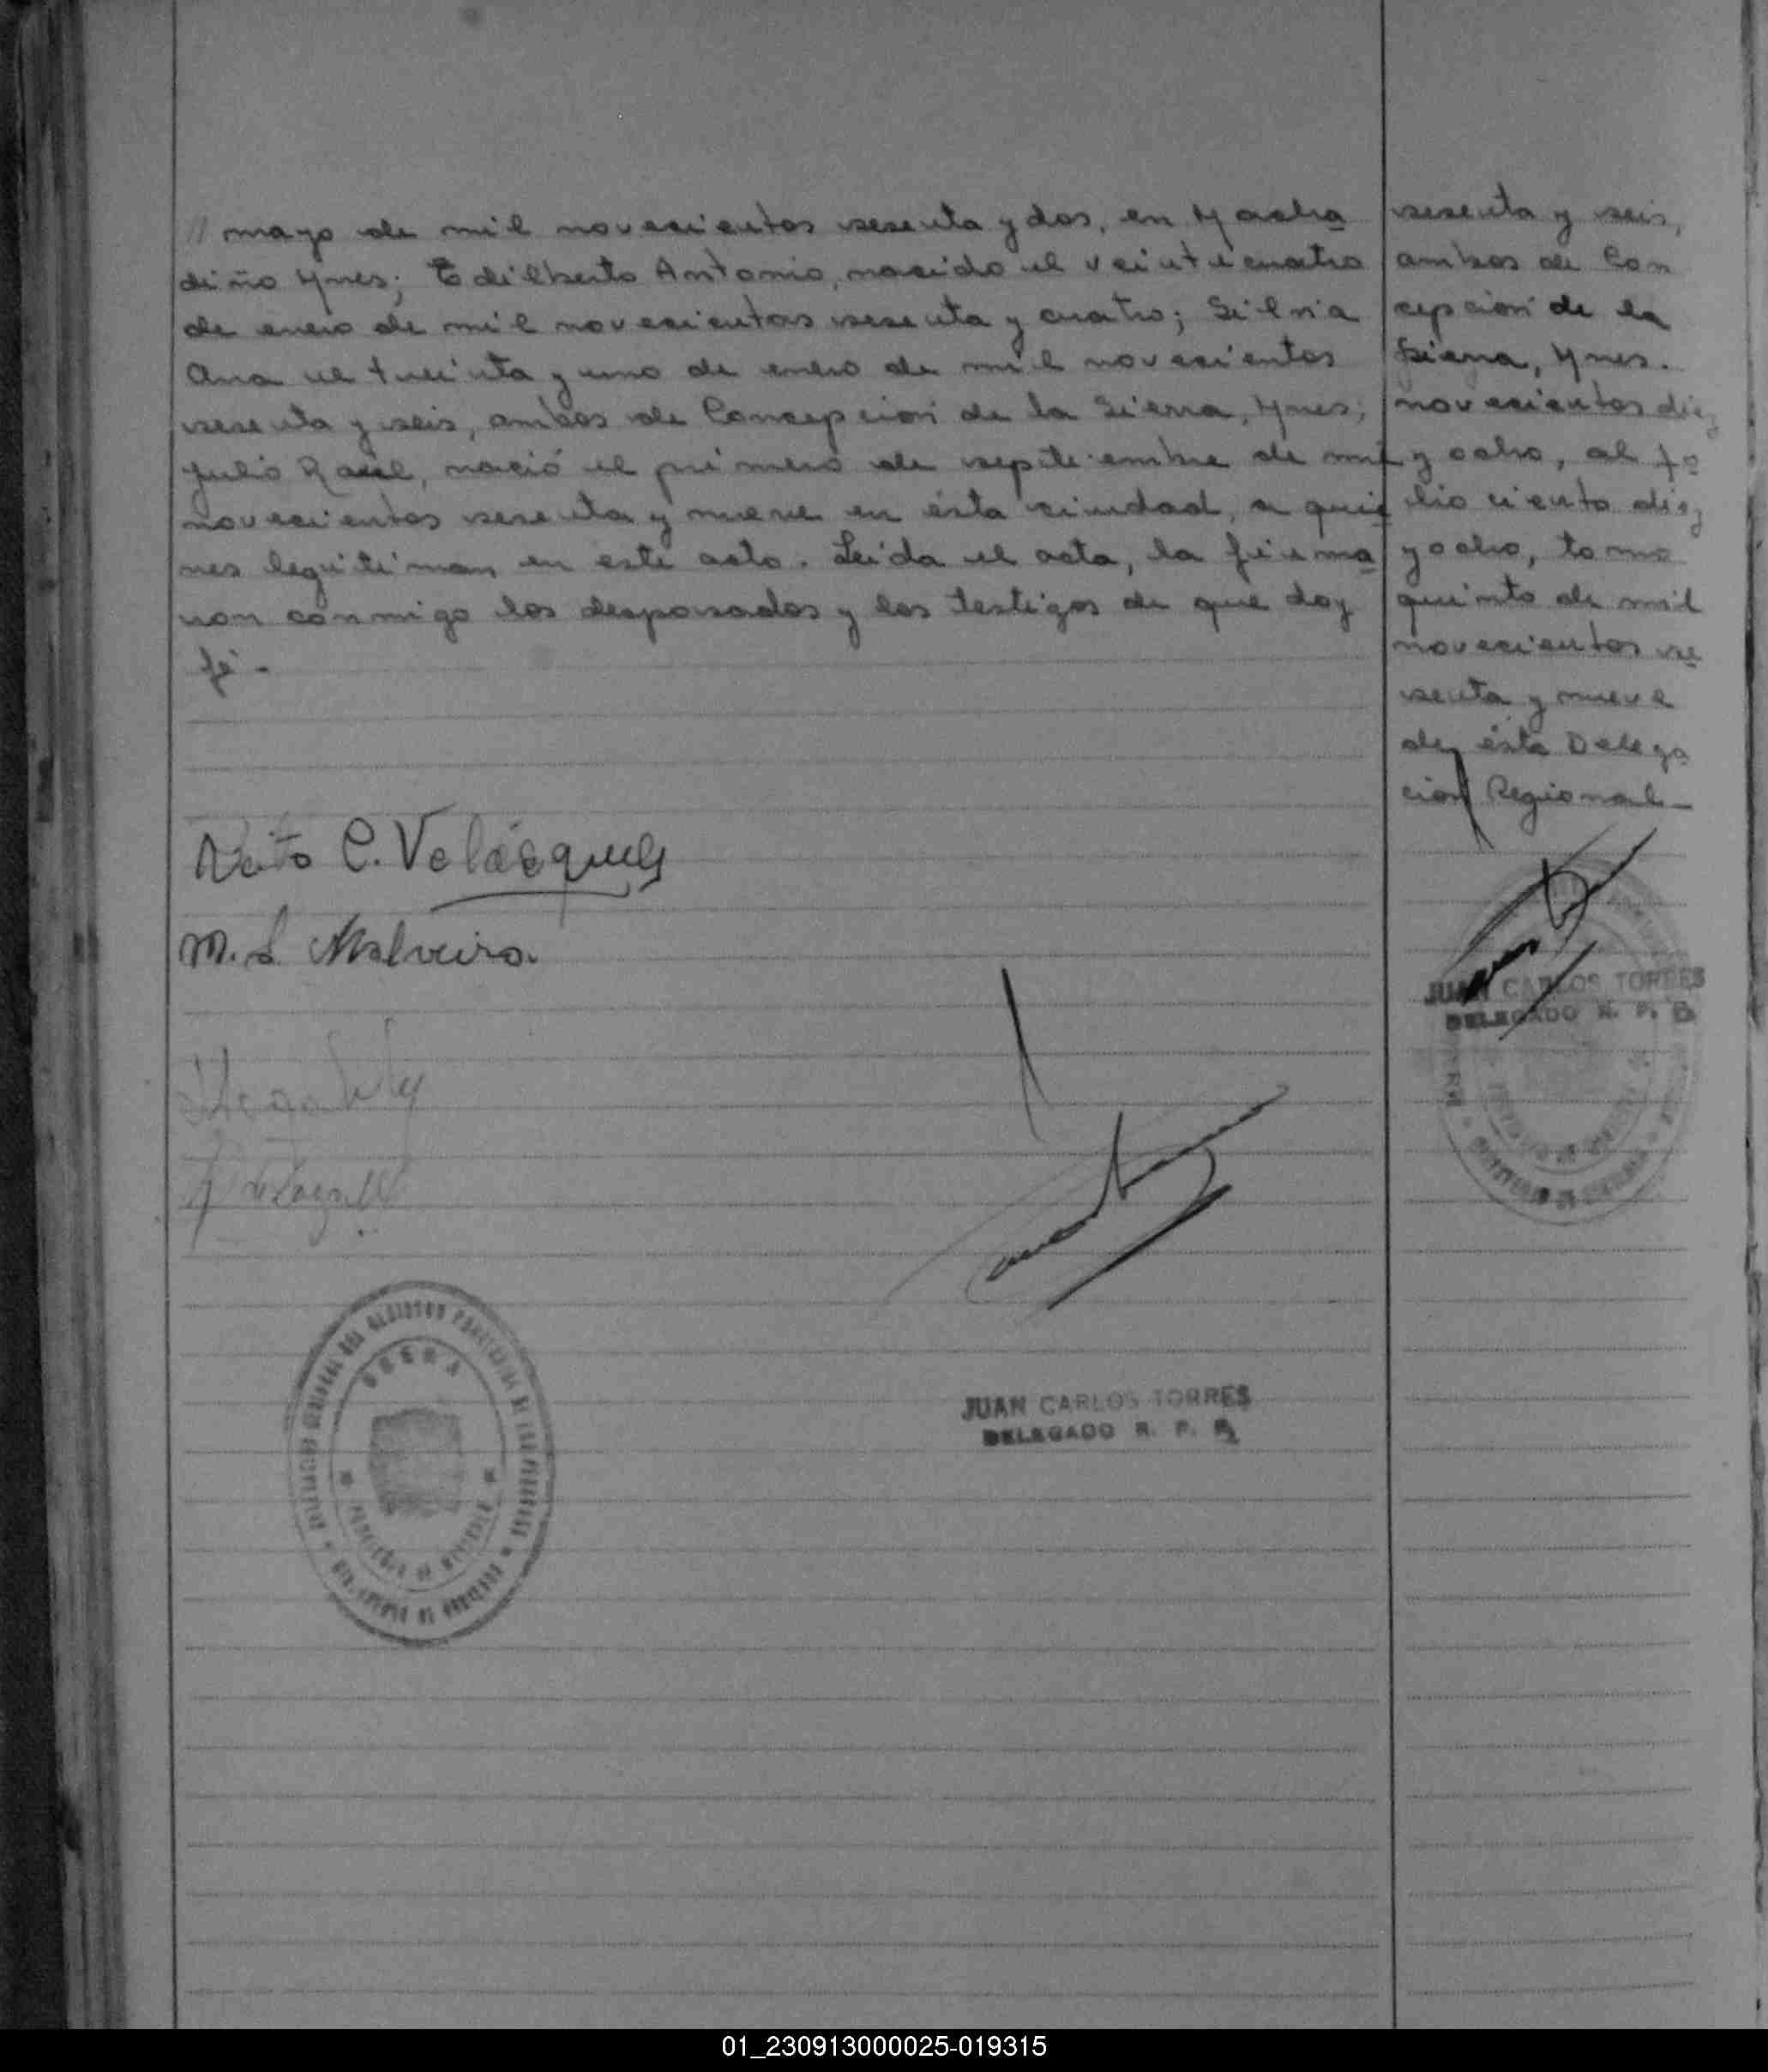 // mayo de mil novecientos sesenta y dos, en Machа
diño Mnes; Edilberto Antonio, nacido el veinticuatro
de enero de mil novecientos sesenta y cuatro; Silvia
Ana el treinta y uno de enero de mil novecientos
sesenta y seis, ambos de Concepción de la Sierra, Mnes;
Julio Raul, nació el primero de septiembre de mil
novecientos sesenta y nueve en ésta ciudad, a quie
nes legitiman en este acto. Leída el acta, la firma
ron conmigo los desposados y los testigos de que doy
fé-
C. Velásquez
M. S. Malveira
JUAN CARLOS TORRES
DELEGADO R. P. P.
sesenta y seis,
ambos de Con
cepción de la
Sierra, Mnes.
novecientos diez
y ocho, al fo
lio ciento diez
y ocho, tomo
quinto de mil
novecientos se
senta y nueve
de ésta Delega
ción Regional-
JUAN CARLOS TORRES
DELEGADO R. P. P.
01_230913000025-019315